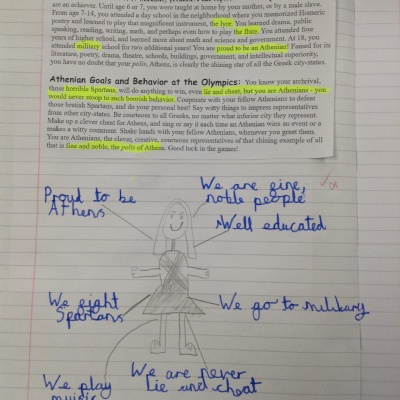 are an achiever. Until age 6 or 7, you were taught at home by your mother, or by a male slave.
From age 7-14, you attended a day school in the neighborhood where you memorized Homeric
poetry and learned to play that magnificent instrument, the lyre. You learned drama, public
speaking, reading, writing, math, and perhaps even how to play the flute. You attended four
years of higher school, and learned more about math and science and government. At 18, you
attended military school for two additional years! You are proud to be an Athenian! Famed for its
literature, poetry, drama, theatre, schools, buildings, government, and intellectual superiority,
you have no doubt that your polis, Athens, is clearly the shining star of all the Greek city-states.
Athenian Goals and Behavior at the Olympics: You know your archrival,
those horrible Spartans, will do anything to win, even lie and cheat, but you are Athenians - you
would never stoop to such boorish behavior. Cooperate with your fellow Athenians to defeat
those brutish Spartans, and do your personal best! Say witty things to impress representatives
from other city-states. Be courteous to all Greeks, no matter what inferior city they represent.
Make up a clever chant for Athens, and sing or say it each time an Athenian wins an event or a
makes a witty comment. Shake hands with your fellow Athenians, whenever you greet them.
You are Athenians, the clever, creative, courteous representatives of that shining example of all
that is fine and noble, the polis of Athens. Good luck in the games!
Proud to be
Athens
We are fine,
noble people
Well educated
We fight
Spartans
We go to military
We are never
Lie and cheat
We play
music